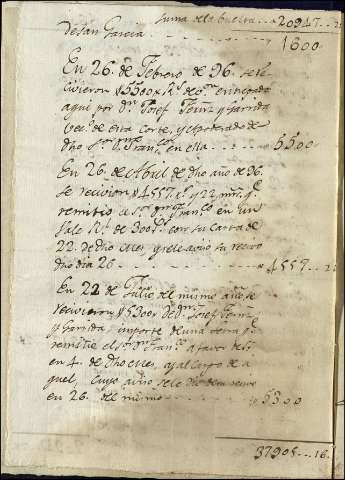 Suma de la buelta... 20947...
de San Garcia ... 1600
En 26. de Febrero de 96. se re-
civieron 5500 r.s de v.on entregados
aqui por D.n Josef Ferrz y Garrida
vec.o de esta Corte, y Apoderado de
dho S.or D.n Fran.co en ella ... 5500
En 26. de Abril de dho año de 96.
se recivieron 4557 r.s y 22 mrs. q.e
remitio el S.or D.n Fran.co en un
Vale R.l de 300 p.s con su Carta de
22. de dho mes y se le avisó su recivo
dho dia 26 ... 4557...22
En 22 de Julio del mismo año se
recivieron 5300 r.s de D.n Josef Ferrz
y Garrida, importe de una letra q.e
remitió el S.or D.n Fran.co a favor
en 4. de dho mes, a cargo de a
quel, cuyo aviso se le dio
en 26 del mismo ... 5300
37905...16.